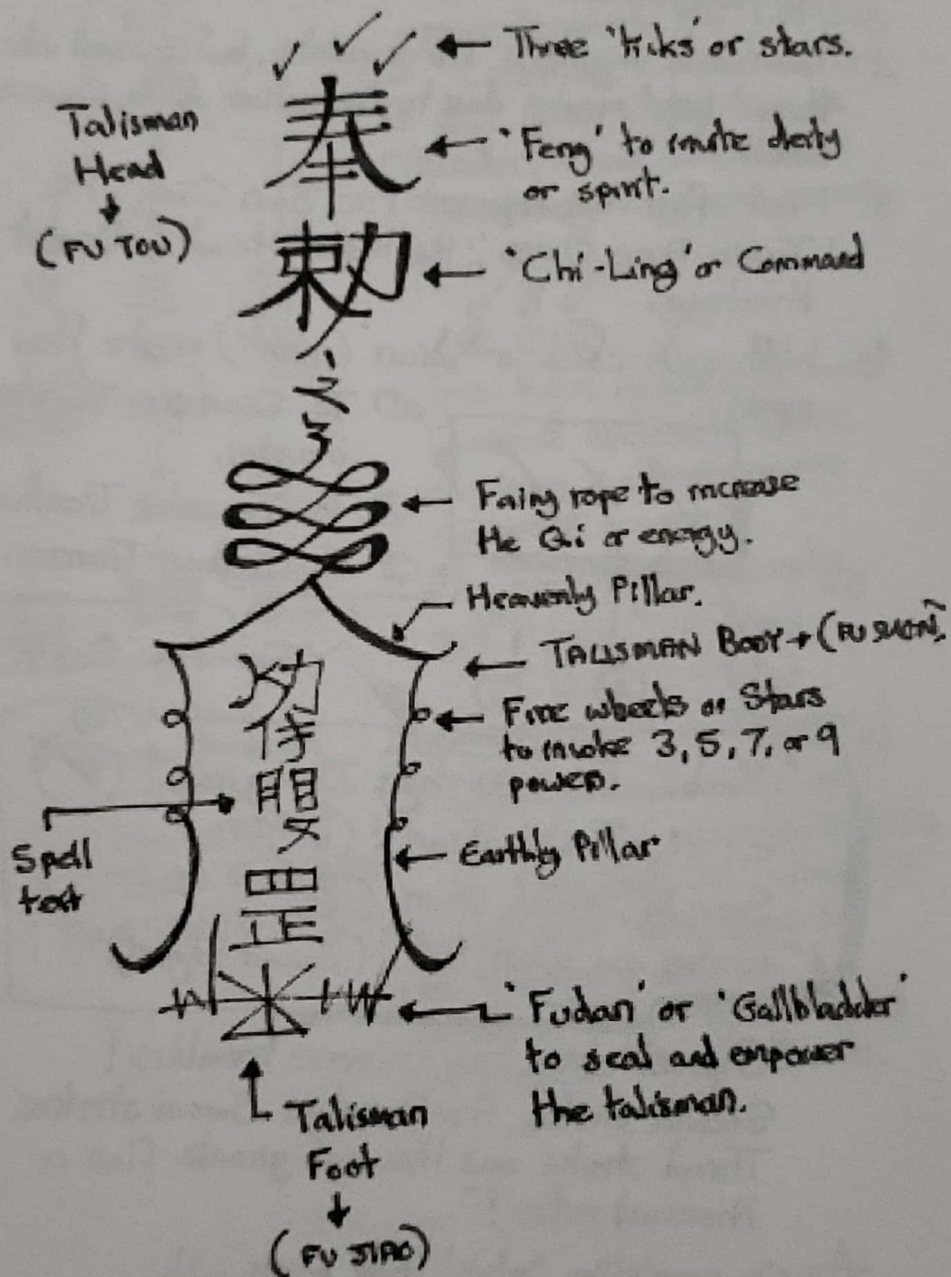 Three 'tiks' or stars.
Talisman
Head
(FU TOU)
奉
'Feng' to invite deity
or spirit.
勅
'Chi-Ling' or Command
Fairy rope to increase
the Qi or energy.
Heavenly Pillar.
TALISMAN BODY → (FU
Fire wheels or Stars
to invoke 3, 5, 7, or 9
power.
Spell
text
Earthly Pillar
'Fudan' or 'Gallbladder'
to seal and empower
the talisman.
Talisman
Foot
(FU JIAO)